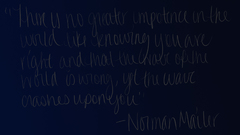 "There is no greater impotence in the
world like knowing you are
right and that the wave of the
world is wrong, yet the wave
crashes upon you."
-Norman Mailer